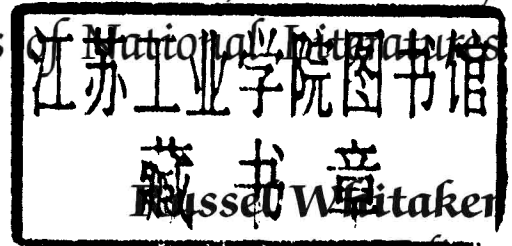 s of National Literatures
江苏工业学院图书馆
藏书章
Russel Whitaker